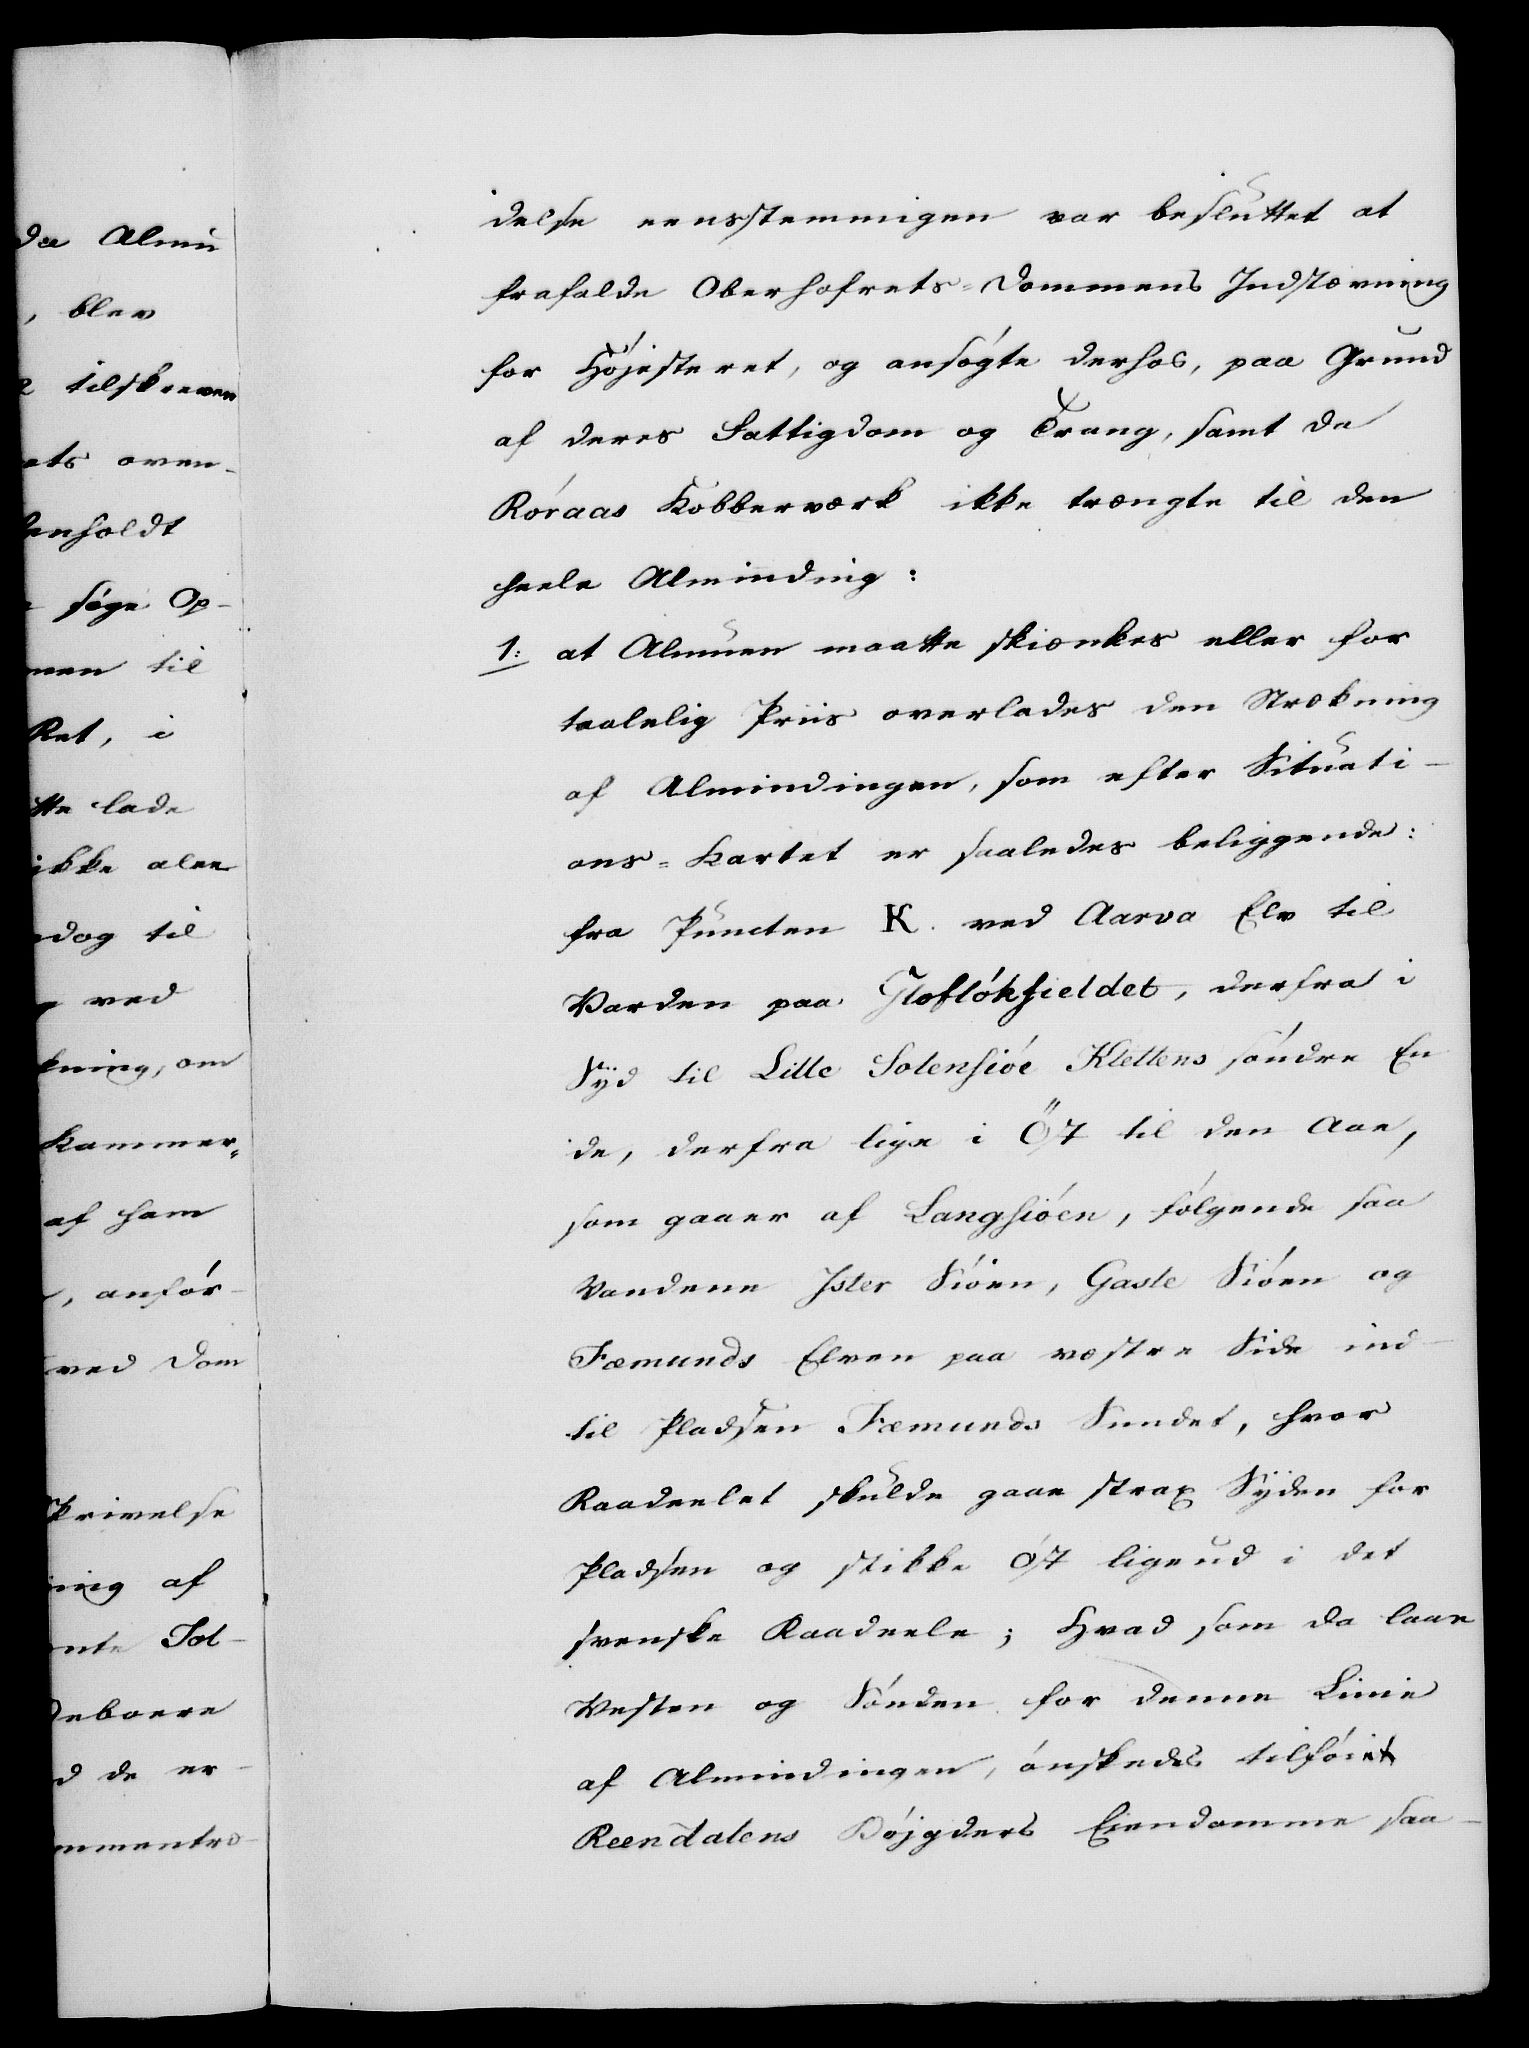 da Almu
, blev
e tilskreven
ets oven-
denholdt
e søge Op-
men til
Ret, i
tte lade
ikke alee
ndog til
g ved
kning, om
Kammer-
af ham
, anfør-
ved Dom
Skrivelse
ning af
nte Sol-
deboere
d de er-
mmentræ-
delse eensstemmigen var besluttet at
frafalde Oberhofrets-Dommens Indstævning
for Højesteret, og ansøgte derhos, paa Grund
af deres Fattigdom og Trang, samt da
Røraas Kobberværk ikke trængte til den
heele Alminding:
1: at Almuen maatte skiænkes eller for
taalelig Priis overlades den Strækning
af Almindingen, som efter Situati-
ons-Kartet er saaledes beliggende:
fra Puncten K. ved Aarva Elv til
Varden paa Fløtløkfieldet, derfra i
Syd til Lille Solensiøe Klettens søndre En
de, derfra lige i Øst til den Aae,
som gaaer af Langsiøen, følgende saa
Vandene Ister Siøen, Gaste Siøen og
Fæmunds Elven paa væstre Side ind-
til Pladsen Fæmunds Sundet, hvor
Raadeelet skulde gaae strax Syden for
Pladsen og stikke Øst ligeud i det
svenske Raadeele; Hvad som da laae
Vesten og Sønden for denne Linie
af Almindingen, ønskedes tilføiet
Reendalens Bøjgders Eiendomme saa-